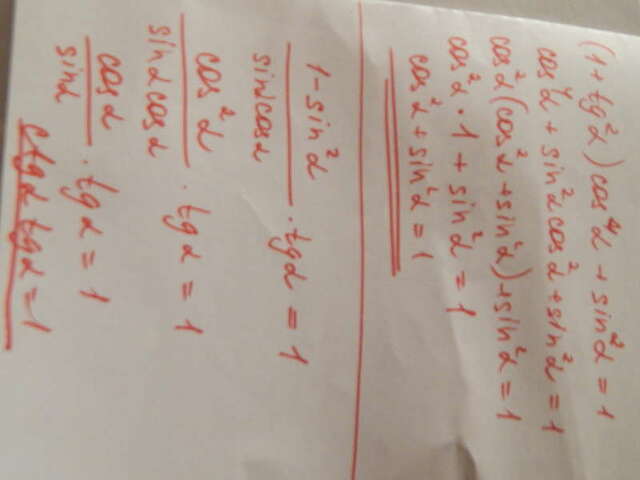 (1+tg²α)cos⁴α+sin²α=1
cos⁴α+sin²αcos²α+sin²α=1
cos²α(cos²α+sin²α)+sin²α=1
cos²α·1+sin²α=1
cos²α+sin²α=1
1-sin²α/sinαcosα · tgα=1
cos²α/sinαcosα · tgα=1
cosα/sinα · tgα=1
ctgα tgα=1